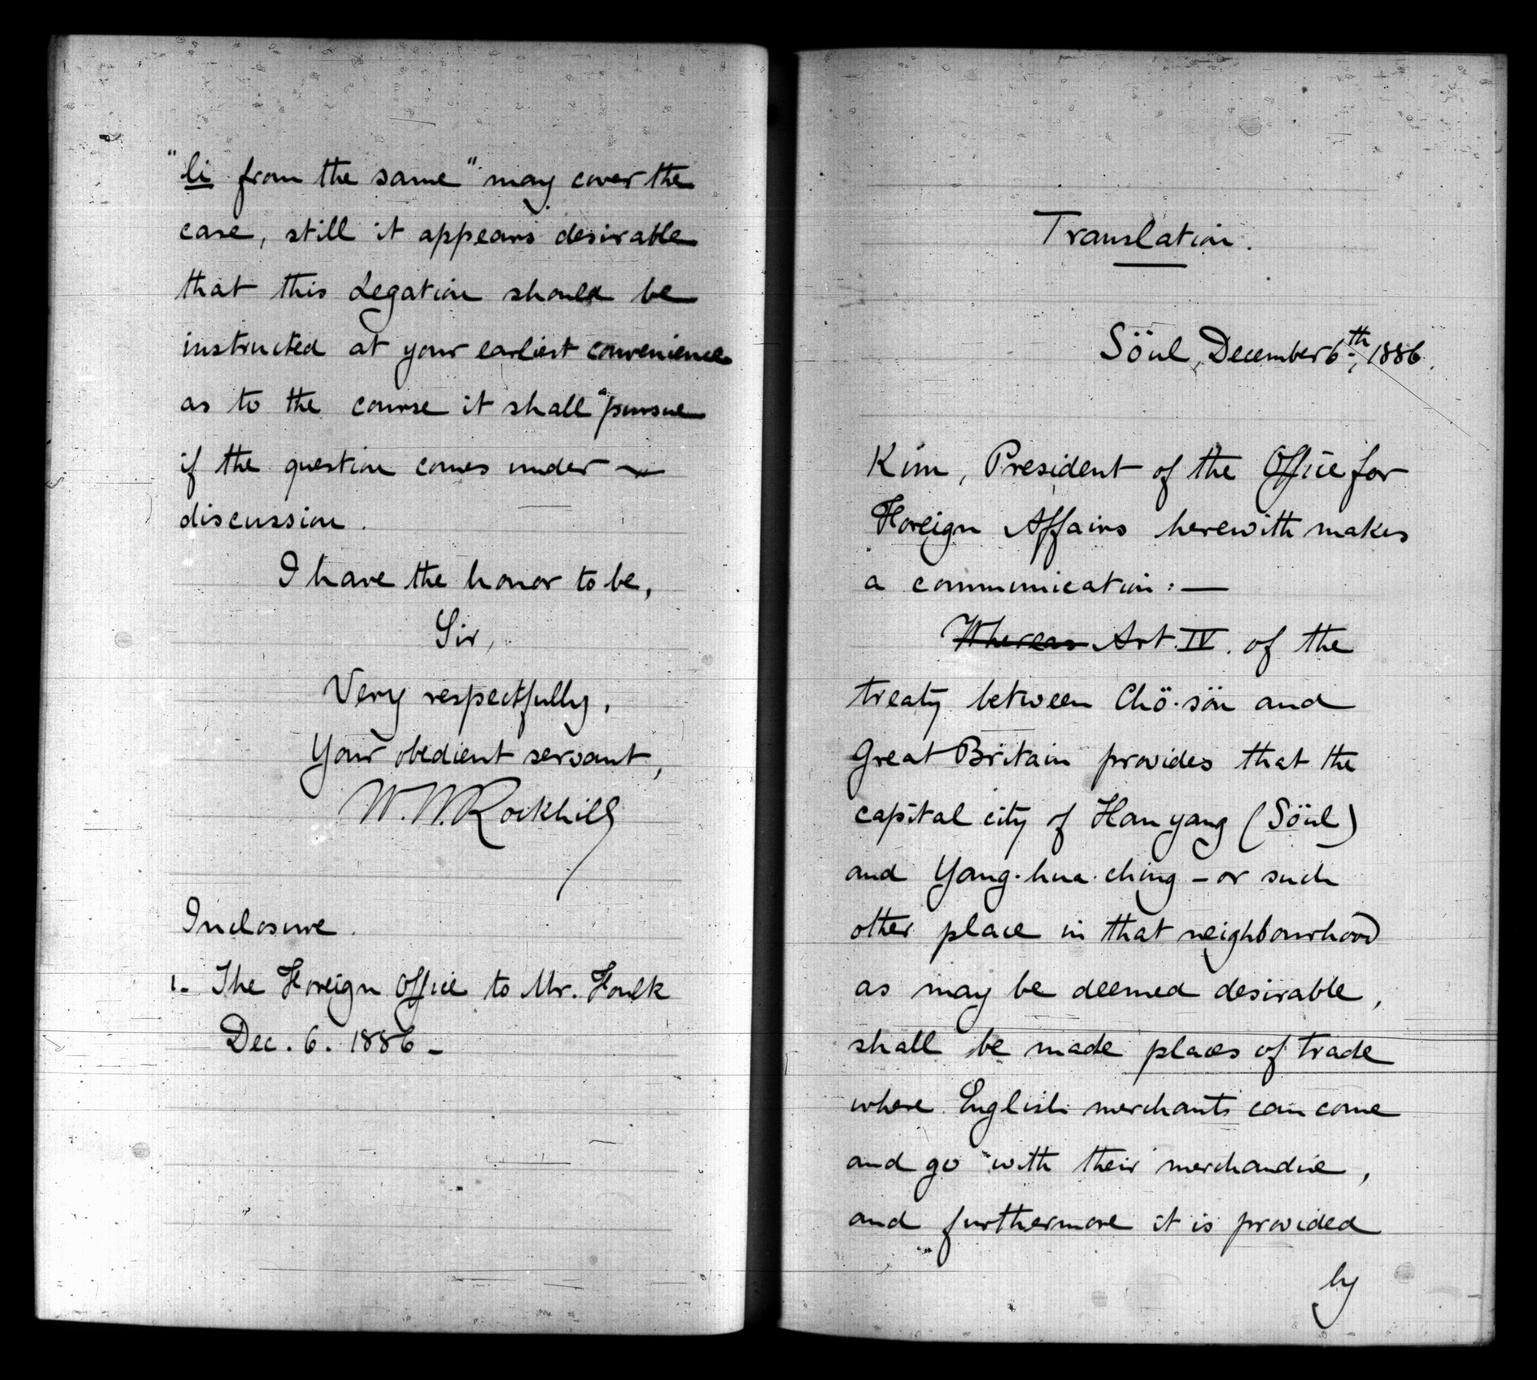 "li from the same" may cover the
case, still it appears desirable
that this Legation should be
instructed at your earliest convenience
as to the course it shall pursue
if the question comes under
discussion.
I have the honor to be,
Sir,
Very respectfully,
Your obedient servant,
W. W. Rockhill
Inclosure.
1- The Foreign Office to Mr. Foulk
Dec. 6. 1886-
Translation.
Söul, December 6th, 1886.
Kim, President of the Office for
Foreign Affairs herewith makes
a communication: —
Whereas Art. IV. of the
treaty between Chö-sön and
Great Britain provides that the
capital city of Han yang (Söul)
and Yang-hua-ching - or such
other place in that neighbourhood
as may be deemed desirable,
shall be made places of trade
where English merchants can come
and go with their merchandise,
and furthermore it is provided
by